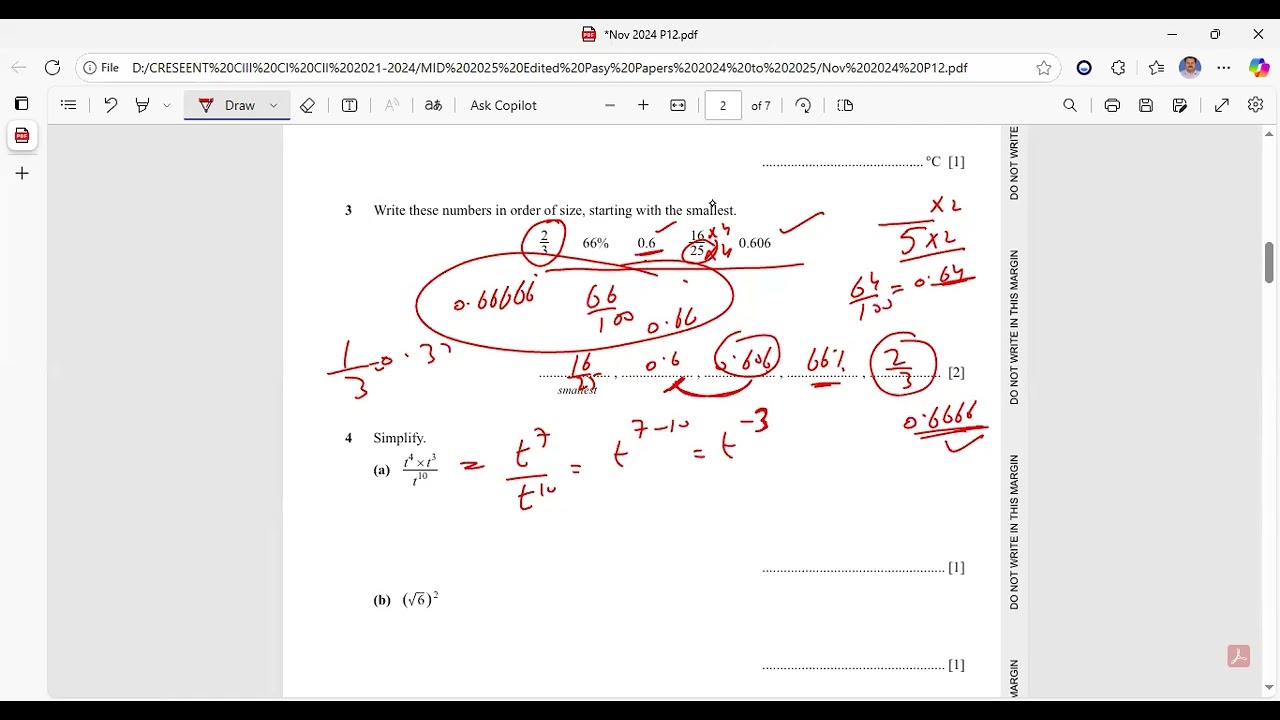 *Nov 2024 P12.pdf
File D:/CRESEENT%20CIII%20CI%20CII%202021-2024/MID%202025%20Edited%20Pasy%20Papers%202024%20to%202025/Nov%202024%20P12.pdf
Draw aあ Ask Copilot 2 of 7
°C [1]
DO NOT WRITE
3 Write these numbers in order of size, starting with the smallest.
2/3 66% 0.6 16/25 0.606
×4
×4
×2
5×2
64/100 = 0.64
0.66666 66/100 0.66
1/3
16/25 , 0.6 , 0.606 , 66% , 2/3 [2]
smallest
0.6666
DO NOT WRITE IN THIS MARGIN
4 Simplify.
(a) t⁴ × t³ / t¹⁰ = t⁷ / t¹⁰ = t⁷⁻¹⁰ = t⁻³
[1]
DO NOT WRITE IN THIS MARGIN
(b) (√6)²
[1]
MARGIN